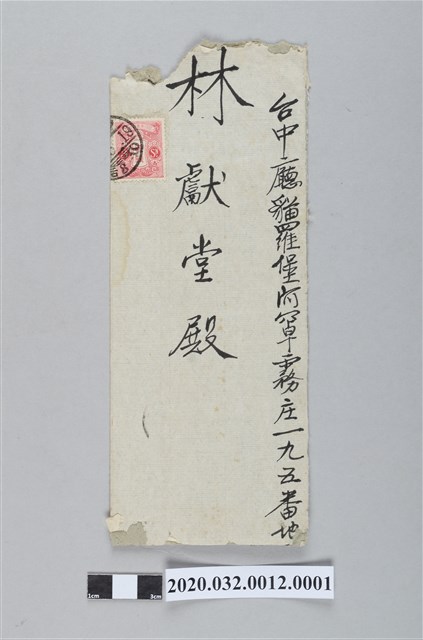 台中廳貓羅堡阿罩霧庄一九五番地
林獻堂殿
1cm 3cm
2020.032.0012.0001